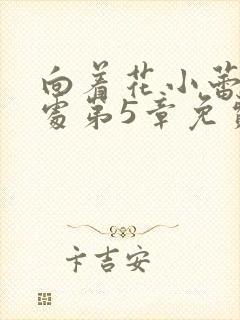 向着花小蕾
处第5章免费
卡吉安